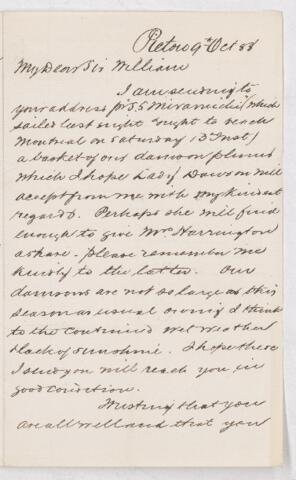 Pictou 9th Oct 88
My Dear Sir William
I am sending to
your address p S.S. Miramichi (which
sailed last night & ought to reach
Montreal on Saturday 13th Inst)
a basket of our damson plums
which I hope Lady Dawson will
accept from me with my kindest
regards. Perhaps she will find
enough to give Mrs Harrington
a share. please remember me
kindly to the latter. Our
damsons are not so large as this
season as usual owing I think
to the continued wet weather
& lack of sunshine. I hope these
I send you will reach you in
good condition.
Trusting that you
are all well and that you